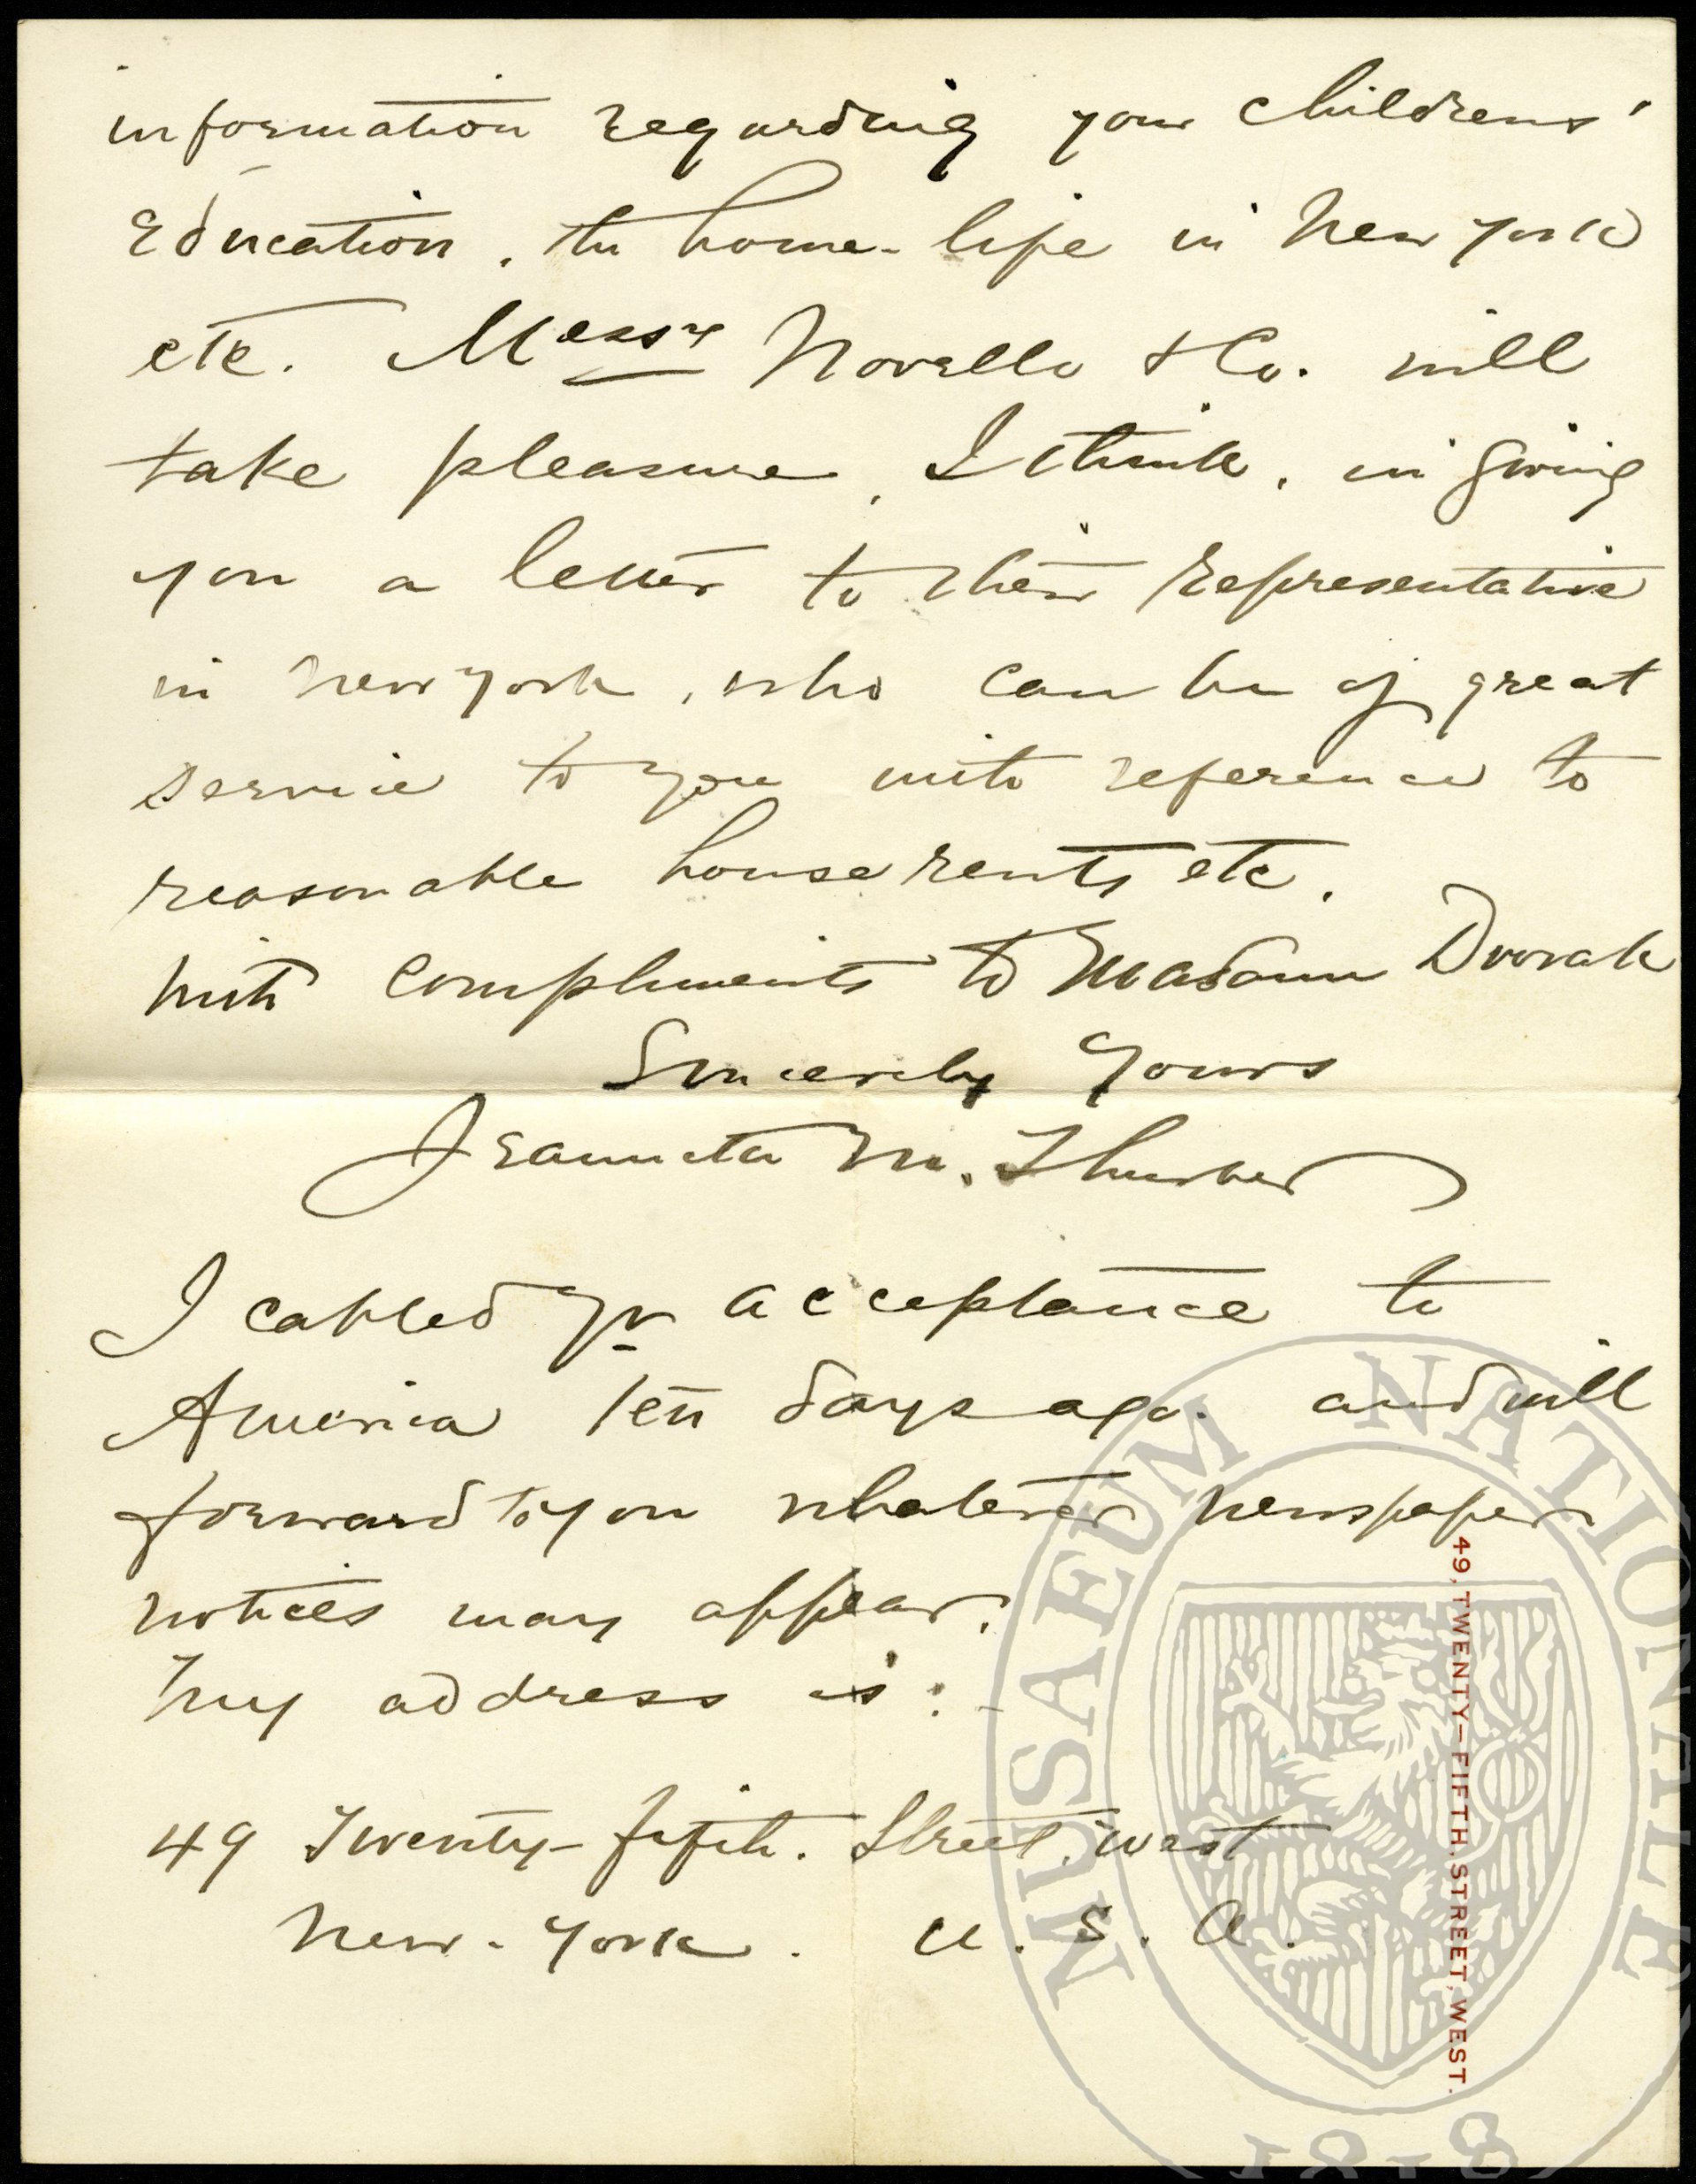 information regarding your childrens'
Education, the home-life in New York
etc. Messrs Novello & Co. will
take pleasure, I think, in giving
you a letter to their representative
in New York, who can be of great
service to you with reference to
reasonable house rents etc.
With compliments to Madam Dvorak
Sincerely Yours
Jeannette M. Thurber
I cabled yr acceptance to
America ten days ago. and will
forward to you whatever newspaper
notices may appear.
My address is:-
49 Twenty-fifth. Street. West
New-York. U.S.A.
49, TWENTY–FIFTH. STREET, WEST.
MUSAEUM NATIONALE
1818